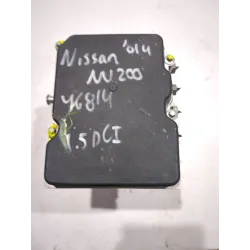 Nissan '014
NV200
46814
1.5 DCI